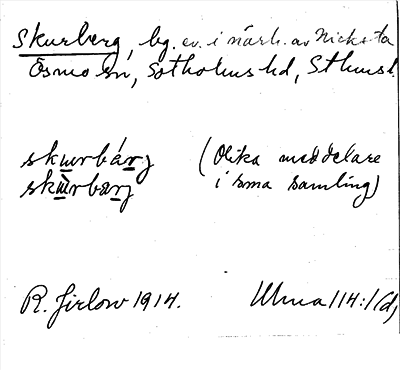 Skurberg, bg. ev. i närh. av Nicksta
Ösmo sn, Sotholms hd, Sthms l.
skurbárj (Olika meddelare
skùrbarj i sma samling)
R. Jirlow 1914. Ulma 114:1 (d)